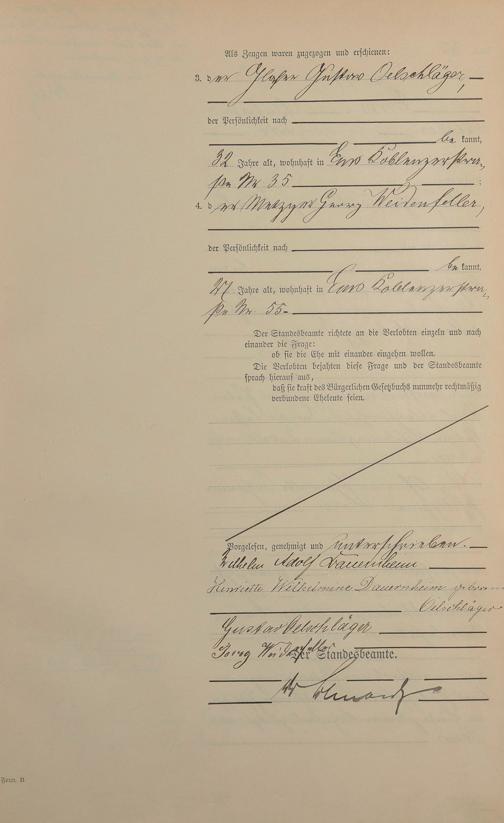 Als Zeugen waren zugezogen und erschienen:
3. der Glaser Gustav Oelschläger,
der Persönlichkeit nach
be kannt,
32 Jahre alt, wohnhaft in Ems Koblenzerstra-
ße Nr. 35
4. der Metzger Georg Weidenfeller,
der Persönlichkeit nach
be kannt,
27 Jahre alt, wohnhaft in Ems Koblenzerstra-
ße Nr. 55-
Der Standesbeamte richtete an die Verlobten einzeln und nach
einander die Frage:
ob sie die Ehe mit einander eingehen wollen.
Die Verlobten bejahten diese Frage und der Standesbeamte
sprach hierauf aus,
daß sie kraft des Bürgerlichen Gesetzbuchs nunmehr rechtmäßig
verbundene Eheleute seien.
Vorgelesen, genehmigt und unterschrieben.
Wilhelm Adolf Dauernheim
Henriette Wilhelmine Dauernheim geborene
Oelschläger
Gustav Oelschläger
Georg Weidenfeller
Der Standesbeamte.
Form. B.